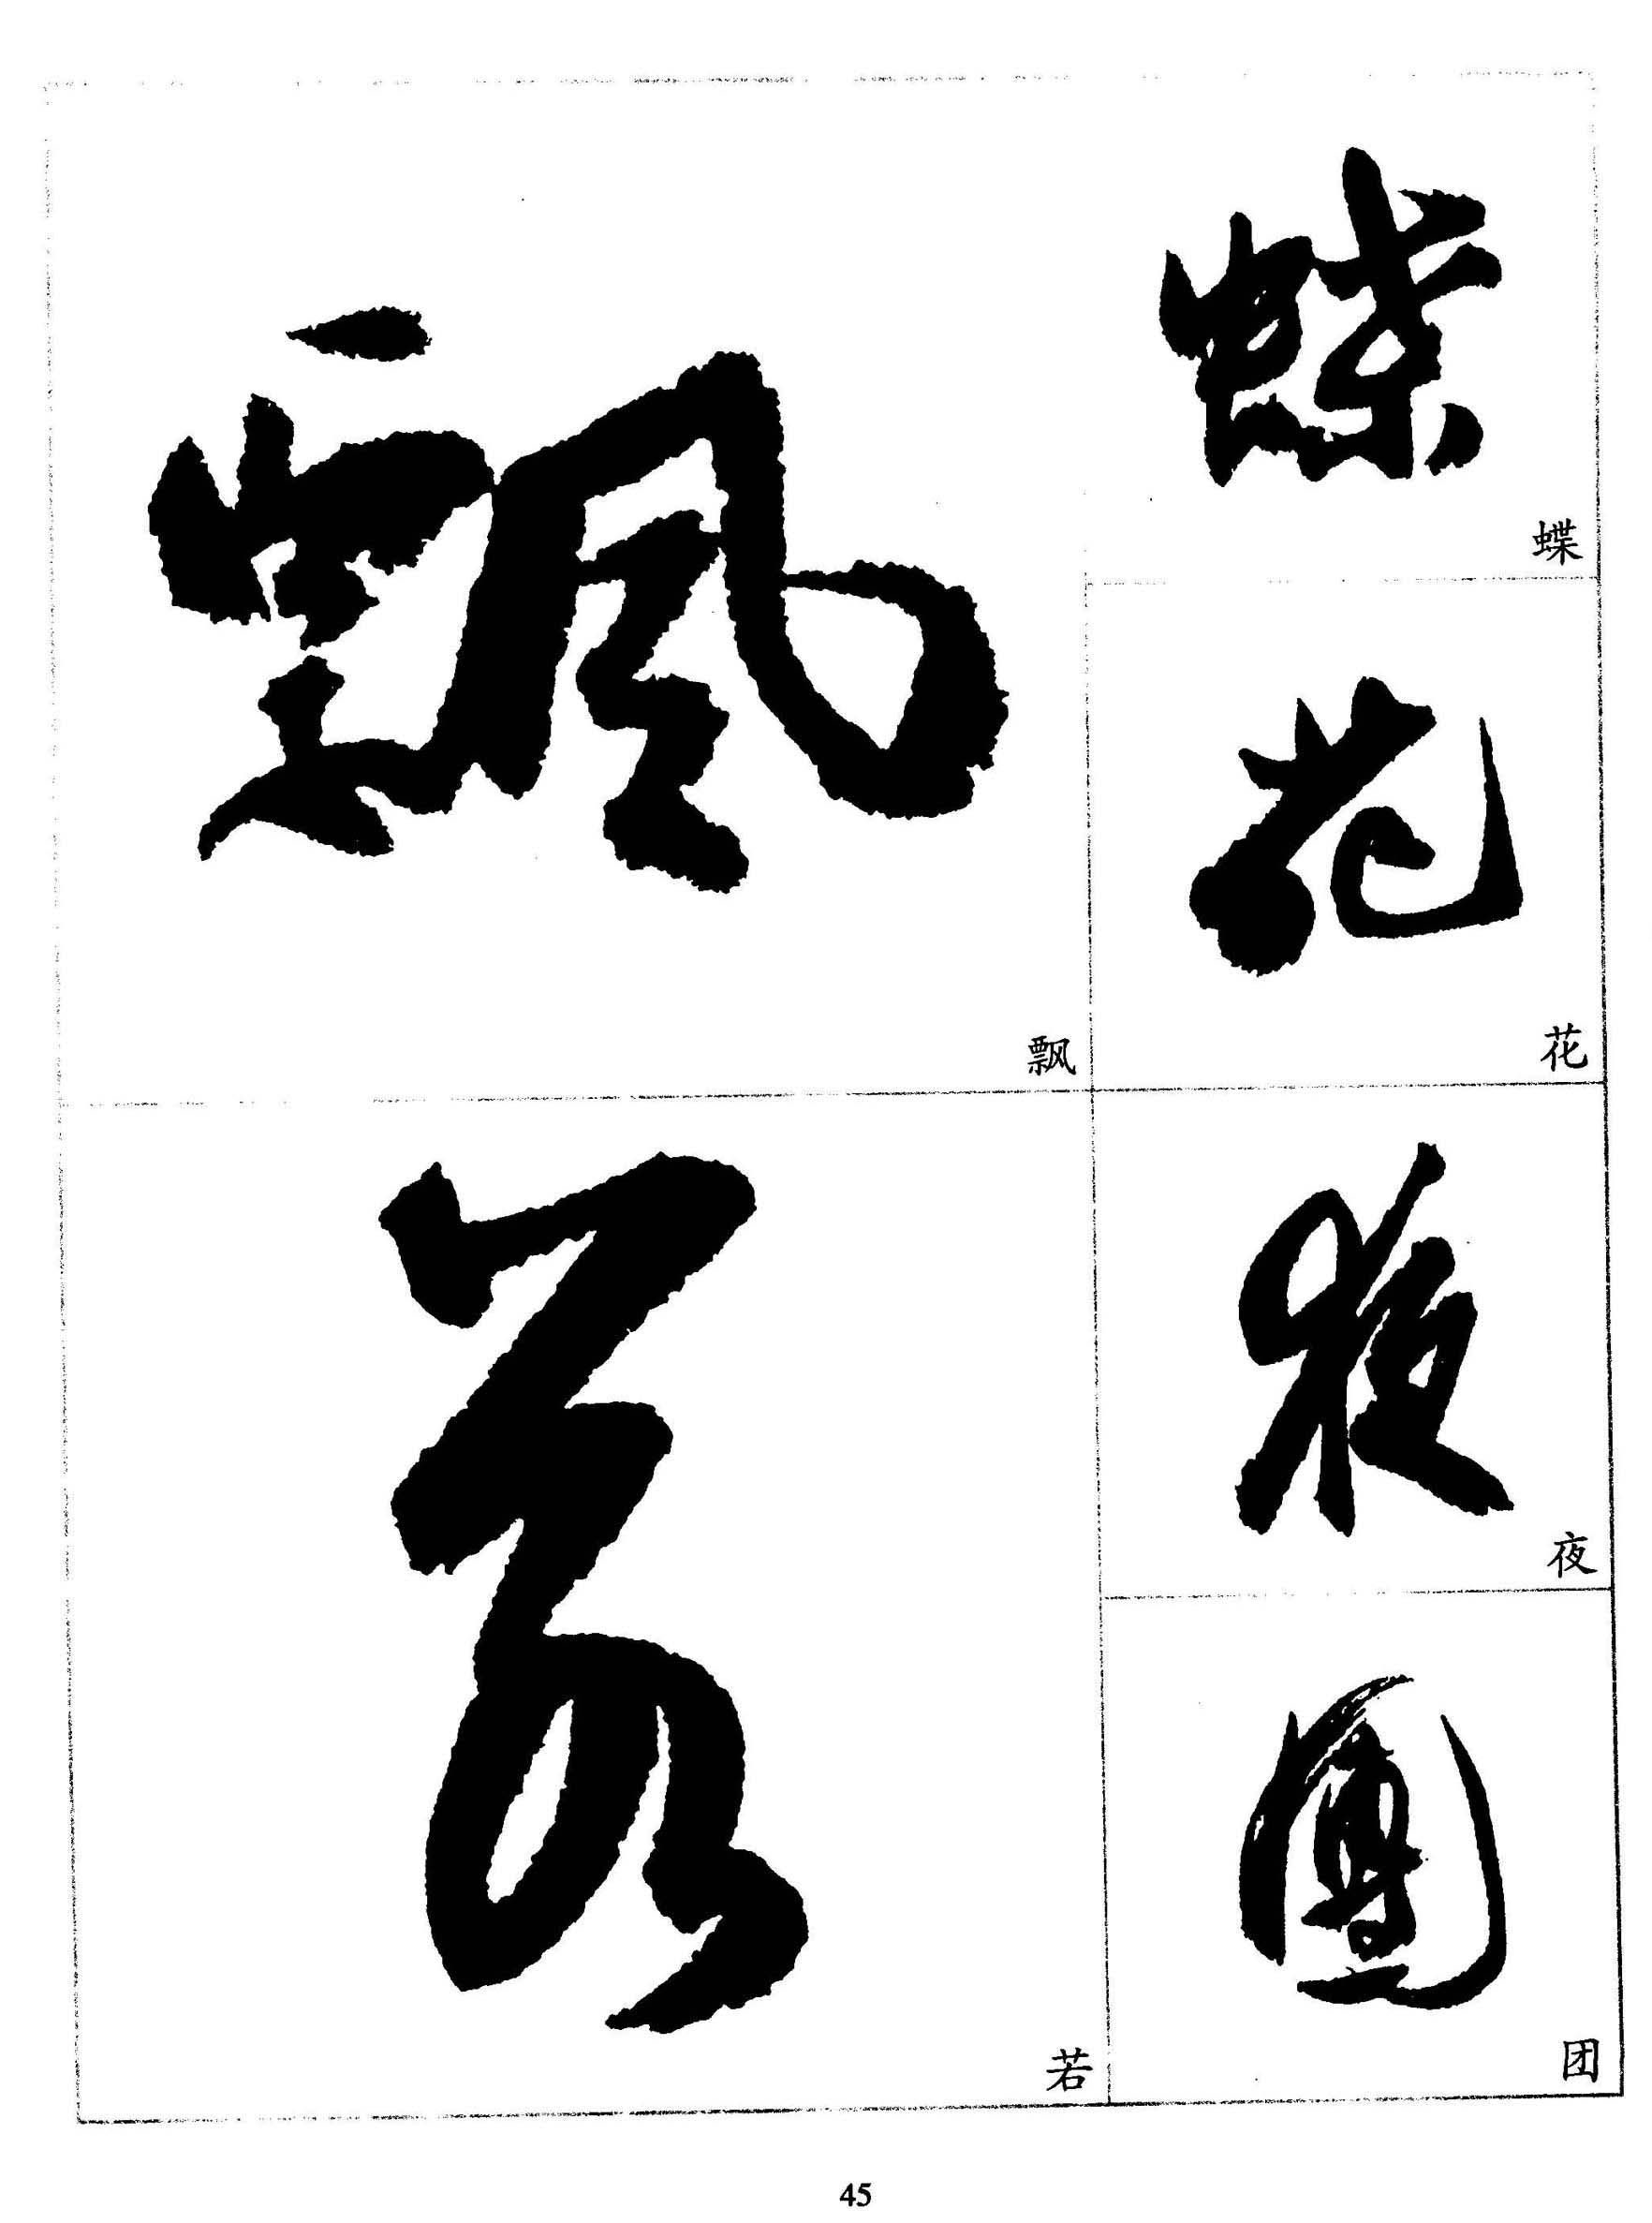 蝶
蝶
花
花
夜
夜
團
团
飄
飘
若
若
45